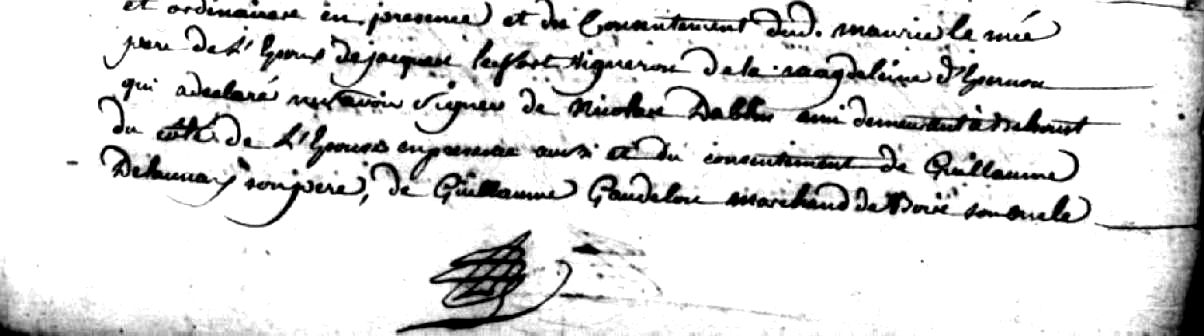 et ordinaire en presence et du Consentement dud. maurice le mée
pere de L'Epoux de jacques lefort vigneron de la magdeleine d'Epernon
qui a declaré ne savoir signer de Nicolas ami demeurant à
du coté de L'Epouse en presence aussi et du consentement de Guillaume
Delaunay son pere, de Guillaume Gaudelou marchand de Bois son oncle